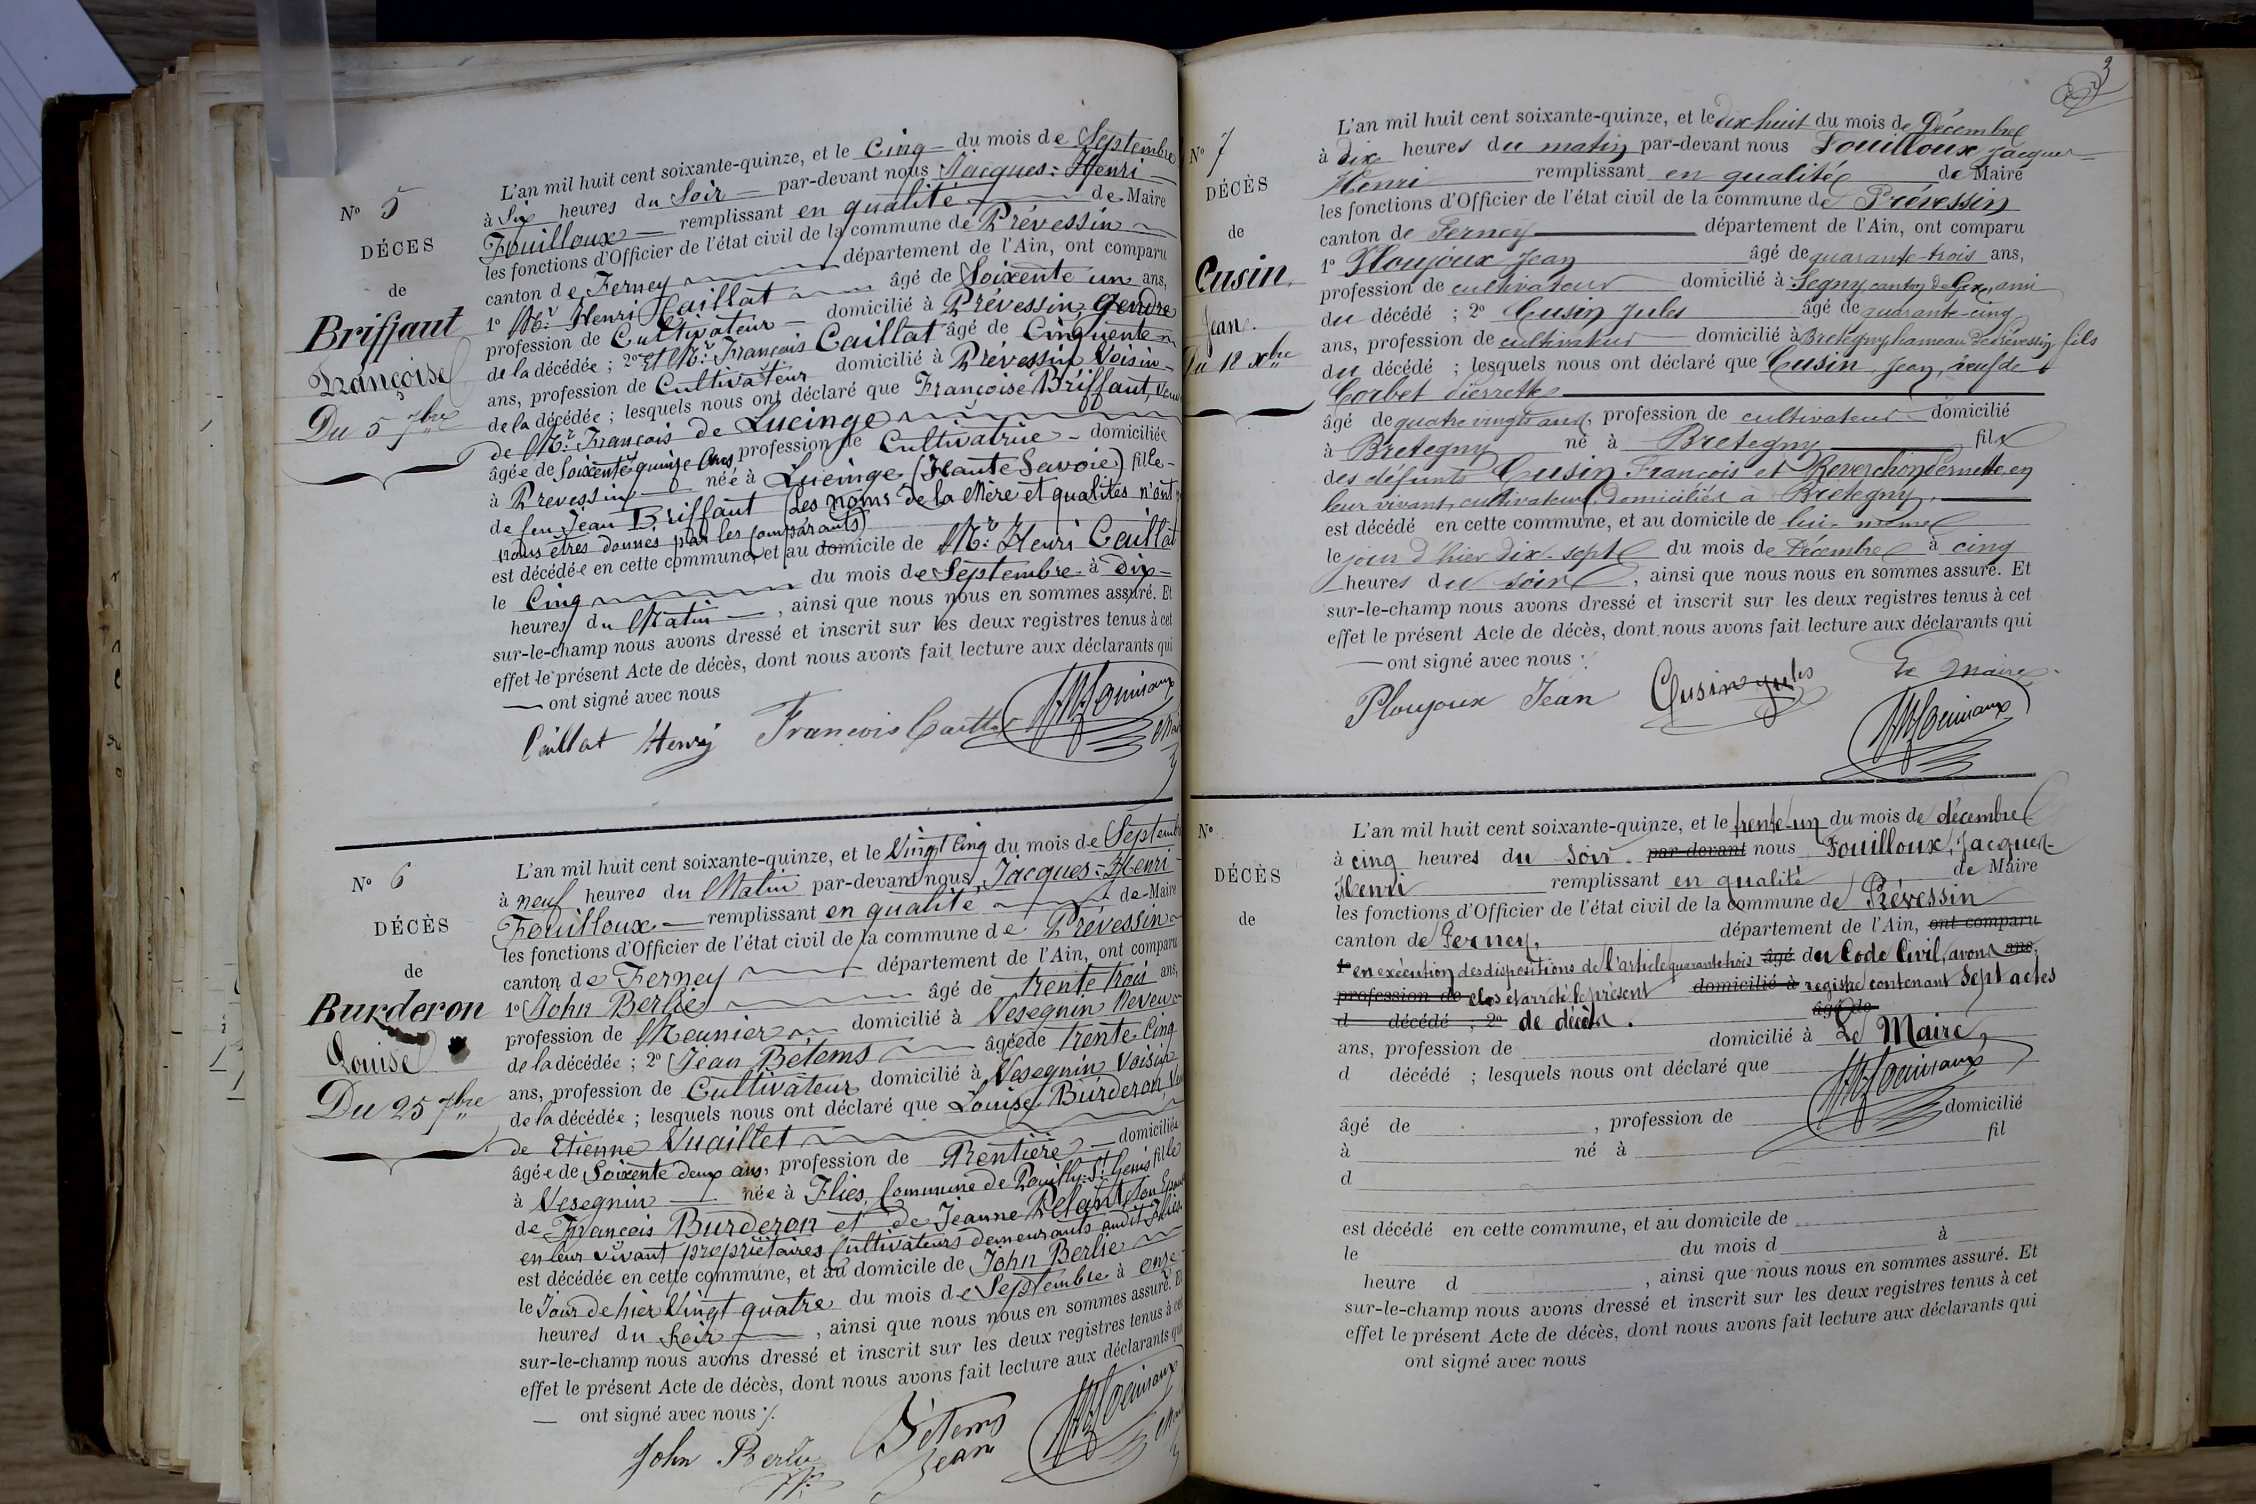 N° 5
DÉCÈS
de
Briffaut
Françoise
Du 5 7bre
L'an mil huit cent soixante-quinze, et le Cinq du mois de Septembre
à Six heures du Soir par-devant nous Jacques=Henri
Fouilloux remplissant en qualité de Maire
les fonctions d'Officier de l'état civil de la commune de Prévessin
canton de Ferney département de l'Ain, ont comparu
1° Mr. Henri Caillat âgé de Soixente un ans,
profession de Cultivateur domicilié à Prévessin, Gendre
de la décédée ; 2° et Mr. François Caillat âgé de Cinquente
ans, profession de Cultivateur domicilié à Prévessin Voisin
de la décédée ; lesquels nous ont déclaré que Françoise Briffaut, Veuve
de Mr. François de Lucinge
âgée de Soixente quinze Ans profession de Cultivatrice domiciliée
à Prevessin née à Lucinge (Haute Savoie) fille
de feu Jean Briffaut (Les Noms de la Mère et qualités n'ont
nous êtres donnés par les Comparants)
est décédée en cette commune, et au domicile de Mr. Henri Caillat
le Cinq du mois de Septembre à dix
heures du Matin, ainsi que nous nous en sommes assuré. Et
sur-le-champ nous avons dressé et inscrit sur les deux registres tenus à cet
effet le présent Acte de décès, dont nous avons fait lecture aux déclarants qui
ont signé avec nous
Caillat Henry François Caillat
N° 6
DÉCÈS
de
Burderon
Louise
Du 25 7bre
L'an mil huit cent soixante-quinze, et le Vingt Cinq du mois de Septemb
à neuf heures du Matin par-devant nous Jacques=Henri
Fouilloux remplissant en qualité de Maire
les fonctions d'Officier de l'état civil de la commune de Prévessin
canton de Ferney département de l'Ain, ont comparu
1° John Berlie âgé de trente trois ans,
profession de Meunier domicilié à Vesegnin Neveu
de la décédée ; 2° Jean Bétems âgée de trente Cinq
ans, profession de Cultivateur domicilié à Vesegnin Voisin
de la décédée ; lesquels nous ont déclaré que Louise Burderon, Veu
de Etienne Vuaillet
âgée de Soixente deux ans, profession de Rentière domiciliée
à Vesegnin née à Flies, Commune de Pouilly-St. Genis fille
de François Burderon et de Jeanne Pelant, Son Epouse
en leur vivant propriétaires Cultivateurs demeurants audit Flies
est décédée en cette commune, et au domicile de John Berlie
le Jour de hier Vingt quatre du mois de Septembre à onze
heures du Soir, ainsi que nous nous en sommes assuré. Et
sur-le-champ nous avons dressé et inscrit sur les deux registres tenus à cet
effet le présent Acte de décès, dont nous avons fait lecture aux déclarants qui
ont signé avec nous
John Berlie Bétems
Jean
3
N° 7
DÉCÈS
de
Cusin
Jean.
Du 18 Xbre
L'an mil huit cent soixante-quinze, et le dix-huit du mois de Décembre
à dix heures du matin par-devant nous Fouilloux Jacques
Henri remplissant en qualité de Maire
les fonctions d'Officier de l'état civil de la commune de Prévessin
canton de Ferney département de l'Ain, ont comparu
1° Ploujoux Jean âgé de quarante-trois ans,
profession de cultivateur domicilié à Segny canton de Gex, ami
du décédé ; 2° Cusin Jules âgé de quarante-cinq
ans, profession de cultivateur domicilié à Bretegny hameau de Prévessin, fils
du décédé ; lesquels nous ont déclaré que Cusin Jean, veuf de
Corbet Pierrette
âgé de quatre vingts ans, profession de cultivateur domicilié
à Bretegny né à Bretegny fils
des défunts Cusin François et Reverchon Pernette, en
leur vivant, cultivateurs domiciliés à Bretegny,
est décédé en cette commune, et au domicile de lui-même
le jour d'hier dix-sept du mois de Décembre à cinq
heures du soir, ainsi que nous nous en sommes assuré. Et
sur-le-champ nous avons dressé et inscrit sur les deux registres tenus à cet
effet le présent Acte de décès, dont nous avons fait lecture aux déclarants qui
ont signé avec nous
Ploujoux Jean Cusin Jules Le Maire
N°
DÉCÈS
de
L'an mil huit cent soixante-quinze, et le trente-un du mois de décembre
à cinq heures du Soir. par-devant nous Fouilloux, Jacques-
Henri remplissant en qualité de Maire
les fonctions d'Officier de l'état civil de la commune de Prévessin
canton de Ferney, département de l'Ain, ont comparu
1° en exécution des dispositions de l'article quarante trois âgé du Code Civil, avons ans,
profession de clos et arrêté le présent domicilié à registre contenant Sept actes
d décédé ; 2° de décès. âgé de
ans, profession de domicilié à Le Maire,
d décédé ; lesquels nous ont déclaré que
âgé de , profession de domicilié
à né à fil
d
est décédé en cette commune, et au domicile de
le du mois d à
heure d , ainsi que nous nous en sommes assuré. Et
sur-le-champ nous avons dressé et inscrit sur les deux registres tenus à cet
effet le présent Acte de décès, dont nous avons fait lecture aux déclarants qui
ont signé avec nous